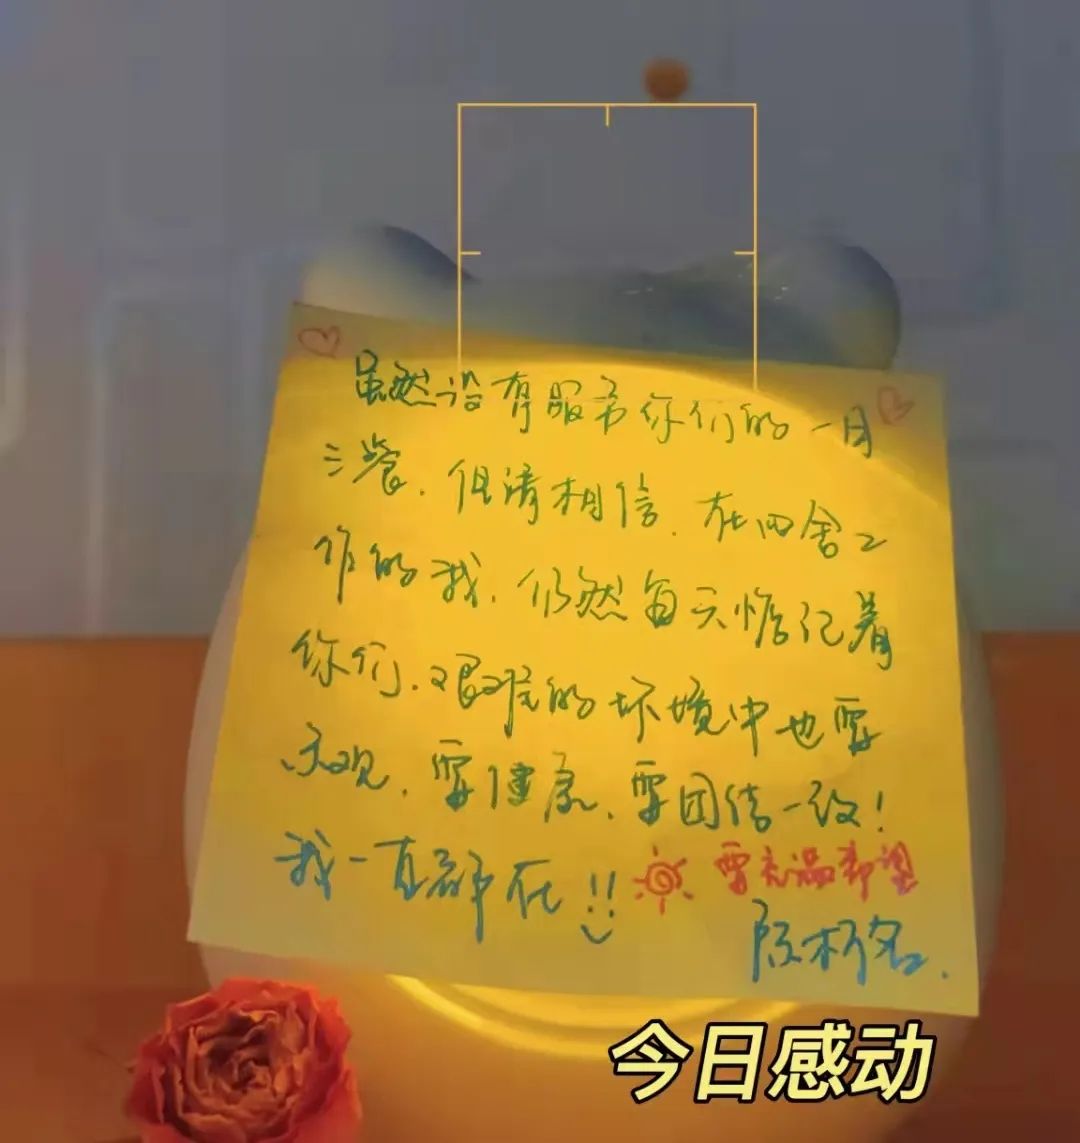 虽然没有服务你们的一日
三餐，但请相信，在四舍工
作的我，仍然每天惦记着
你们，艰难的环境中也要
乐观，要健康，要团结一致！
我一直都在!!
要充满希望
今日感动